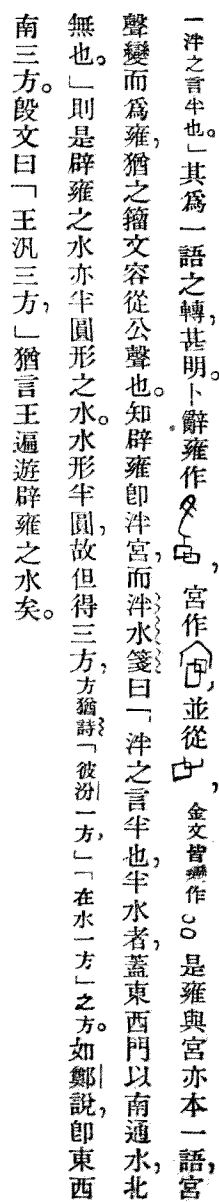 「泮之言半也。」其爲一語之轉，甚明。卜辭雍作，宮作，並從，金文皆變作 是雍與宮亦本一語，宮
聲變而爲雍，猶之籀文容從公聲也。知辟雍卽泮宮，而泮水箋曰「泮之言半也，半水者，蓋東西門以南通水，北
無也。」則是辟雍之水亦半圓形之水。水形半圓，故但得三方，方猶詩「彼汾一方，」「在水一方」之方。如鄭說，卽東西
南三方。殷文曰「王汎三方，」猶言王遍遊辟雍之水矣。